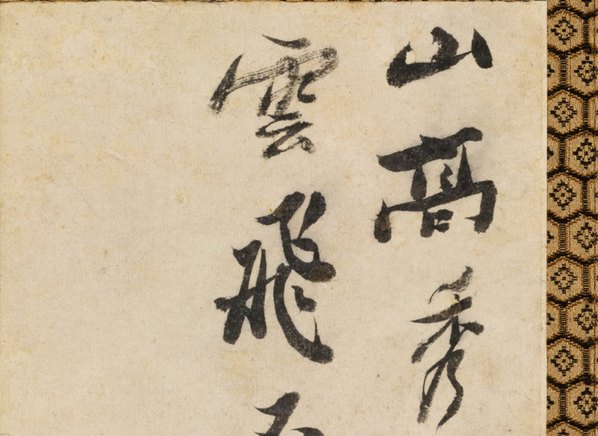 山髙秀
雲飛